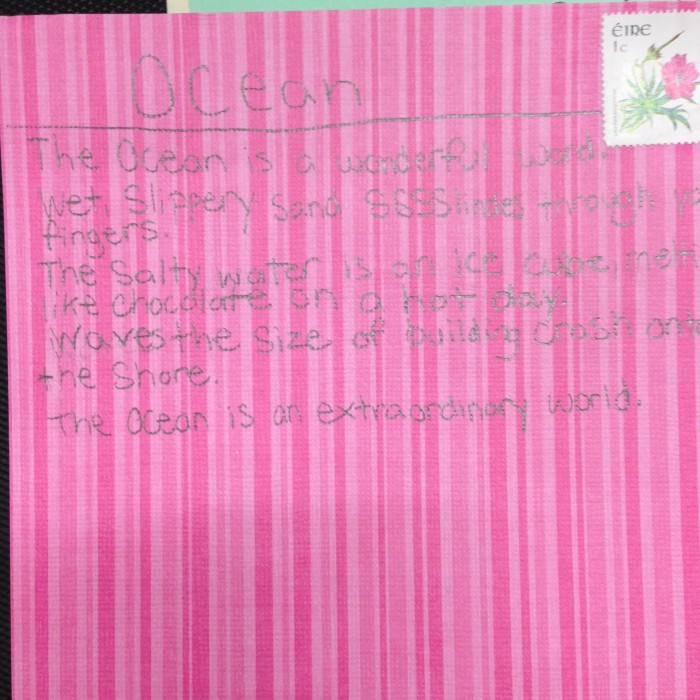 Ocean
ÉIRE
1c
The Ocean is a wonderful word.
Wet, Slippery Sand SSSSlindes through
fingers.
The Salty water is an ice cube, melti
like chocolate on a hot day.
Waves the Size of building crash onto
the Shore.
The Ocean is an extraordinary world.